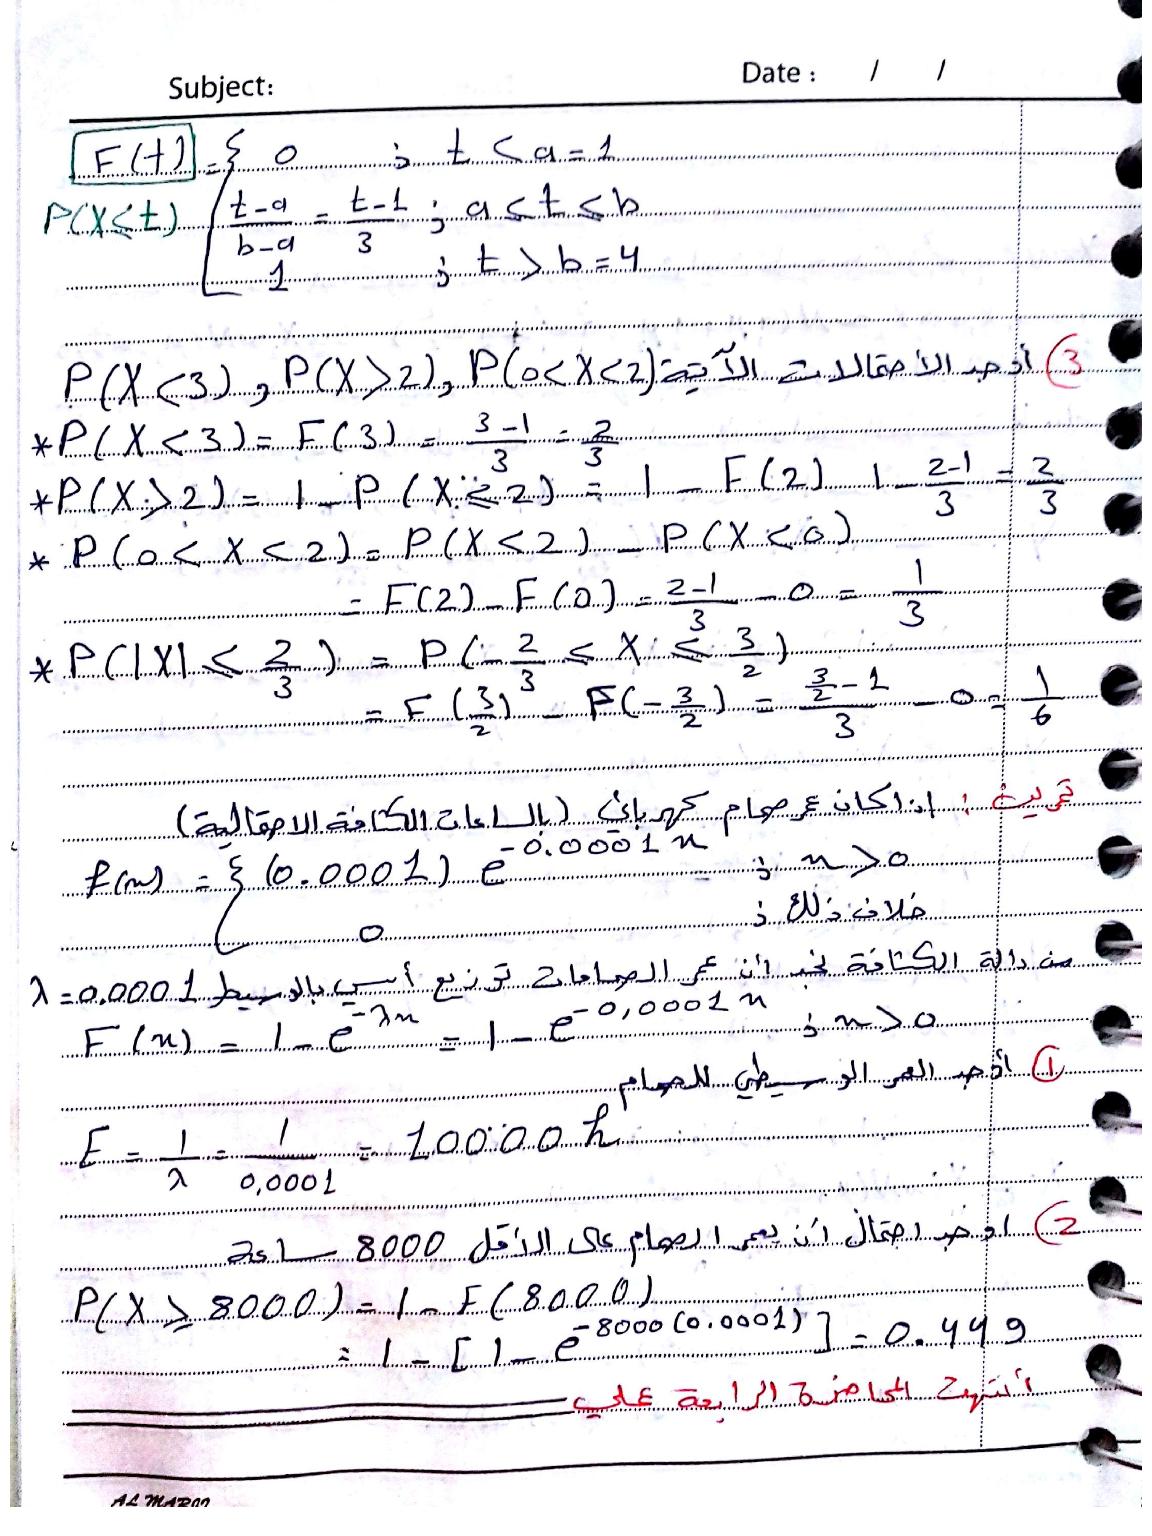 Subject:
Date : / /
F(t) = { 0 ; t < a = 1
P(X≤t) t-a/b-a = t-1/3 ; a ≤ t ≤ b
1 ; t > b = 4
③ أوجد الاحتمالات الآتية P(X<3), P(X>2), P(0<X<2)
* P(X<3) = F(3) = 3-1/3 = 2/3
* P(X>2) = 1 - P(X≤2) = 1 - F(2) 1 - 2-1/3 = 2/3
* P(0<X<2) = P(X<2) - P(X<0)
= F(2) - F(0) = 2-1/3 - 0 = 1/3
* P(|X| ≤ 2/3) = P(-2/3 ≤ X ≤ 3/2)
= F(3/2) - F(-3/2) = 3/2-1/3 - 0 = 1/6
تمرين : إذا كان عمر صمام كهربائي (بالساعات الكثافة الاحتمالية)
f(x) = { (0.0001) e^-0.0001x ; x>0
0 ; خلاف ذلك
من دالة الكثافة نجد أن عمر الصمامات توزيع أسي بالوسيط λ=0.0001
F(x) = 1 - e^-λx = 1 - e^-0,0001x ; x>0
① أوجد العمر الوسيطي للصمام
E = 1/λ = 1/0,0001 = 10000 h
② اوجد احتمال أن يعمر الصمام على الأقل 8000 ساعة
P(X ≥ 8000) = 1 - F(8000)
= 1 - [1 - e^-8000(0.0001)] = 0.449
انتهت المحاضرة الرابعة عملي